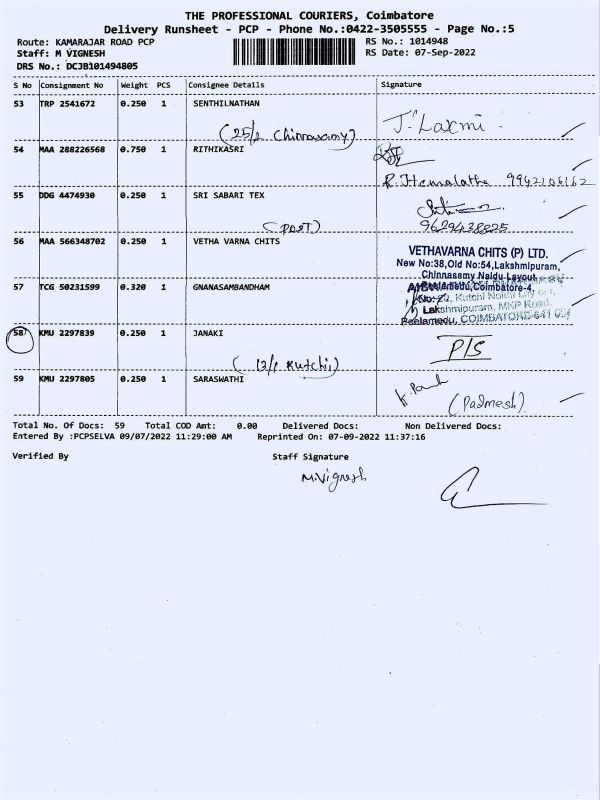 THE PROFESSIONAL COURIERS, Coimbatore
Delivery Runsheet - PCP - Phone No.:0422-3505555 - Page No.:5
Route: KAMARAJAR ROAD PCP RS No.: 1014948
Staff: M VIGNESH RS Date: 07-Sep-2022
DRS No.: DCJB101494805
S No Consignment No Weight PCS Consignee Details Signature
53 TRP 2541672 0.250 1 SENTHILNATHAN
(25/2 Chinnasamy) J. Laxmi
54 MAA 288226568 0.750 1 RITHIKASRI
R. Hemalatha 9942106162
55 DDG 4474930 0.250 1 SRI SABARI TEX
(POST) 9629438825
56 MAA 566348702 0.250 1 VETHA VARNA CHITS
VETHAVARNA CHITS (P) LTD.
New No:38,Old No:54,Lakshmipuram,
Chinnasamy Naidu Layout
57 TCG 50231599 0.320 1 GNANASAMBANDHAM
Coimbatore-4,
Lakshmipuram, MKP Road,
Peelamedu, COIMBATORE-641 004
58 KMU 2297839 0.250 1 JANAKI
(12/1 Kutchi) P/S
59 KMU 2297805 0.250 1 SARASWATHI
(Padmesh)
Total No. Of Docs: 59 Total COD Amt: 0.00 Delivered Docs: Non Delivered Docs:
Entered By :PCPSELVA 09/07/2022 11:29:00 AM Reprinted On: 07-09-2022 11:37:16
Verified By Staff Signature
M.Vignesh